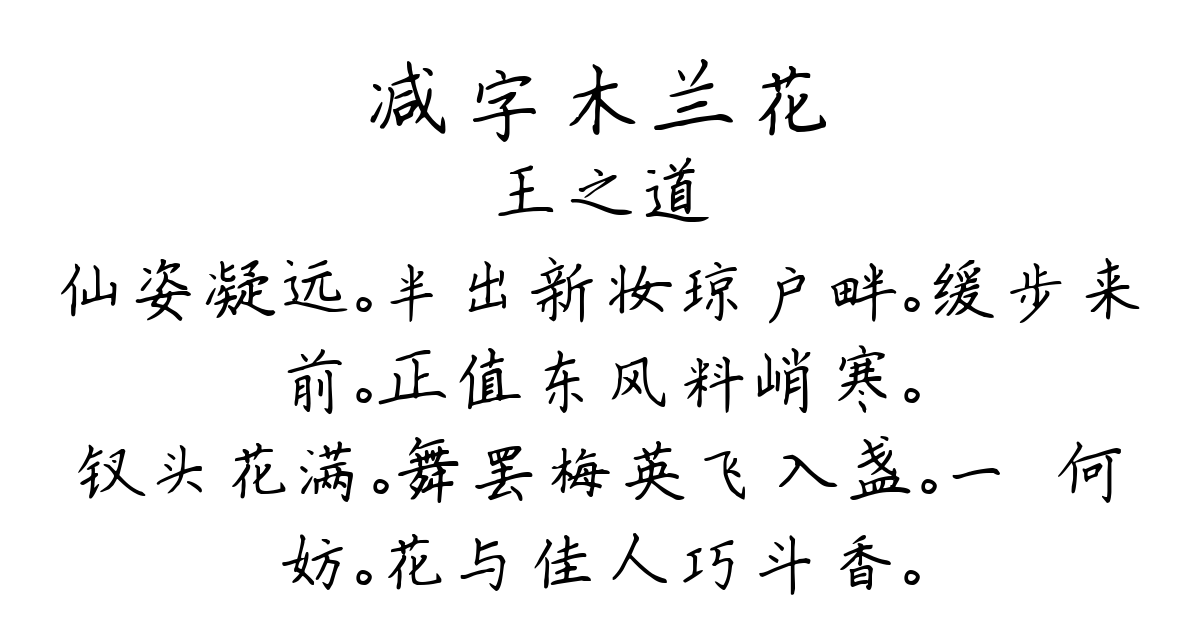 减字木兰花
王之道
仙姿凝远。半出新妆琼户畔。缓步来
前。正值东风料峭寒。
钗头花满。舞罢梅英飞入盏。一 何
妨。花与佳人巧斗香。